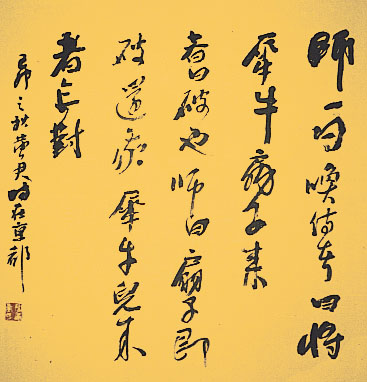 師一日喚侍者曰將
犀牛扇子來
者曰破也師曰扇子既
破還我犀牛兒來
者無對
之秋君時在京都